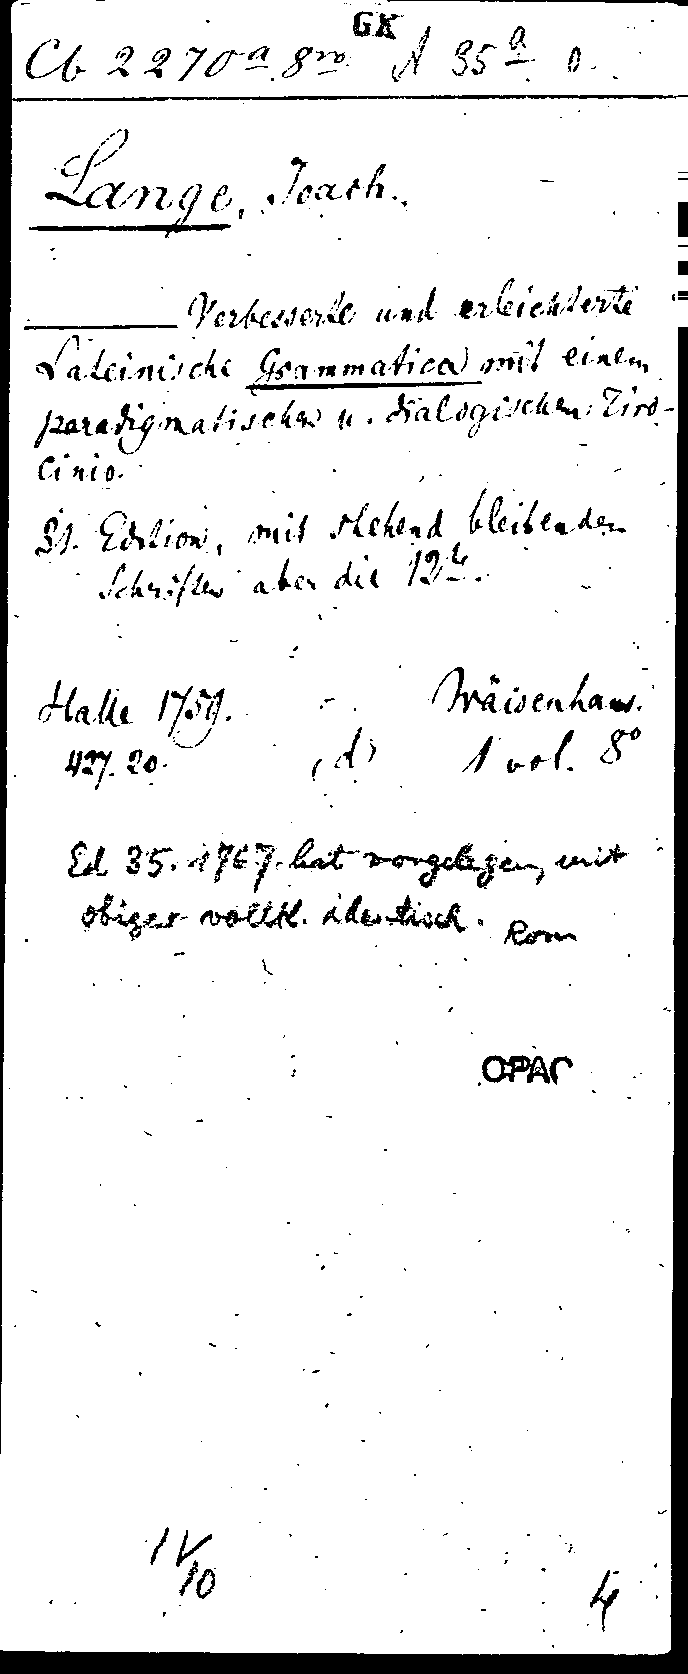 GK
Cb 2270a 8vo A 35a 0.
Lange, Joach.
Verbesserte und erleichterte
Lateinische Grammatica mit einem
paradigmatischen u. dialogischen Tiro-
cinio.
31. Edition, mit stehend bleibenden
Schriften aber die 12te.
Halle 1759. Wäisenhaus.
427. 20. (d) 1 vol. 8o
Ed 35. 1767. hat vorgelegen, mit
obiger vollst. identisch. Rom
OPAC
IV/10
4